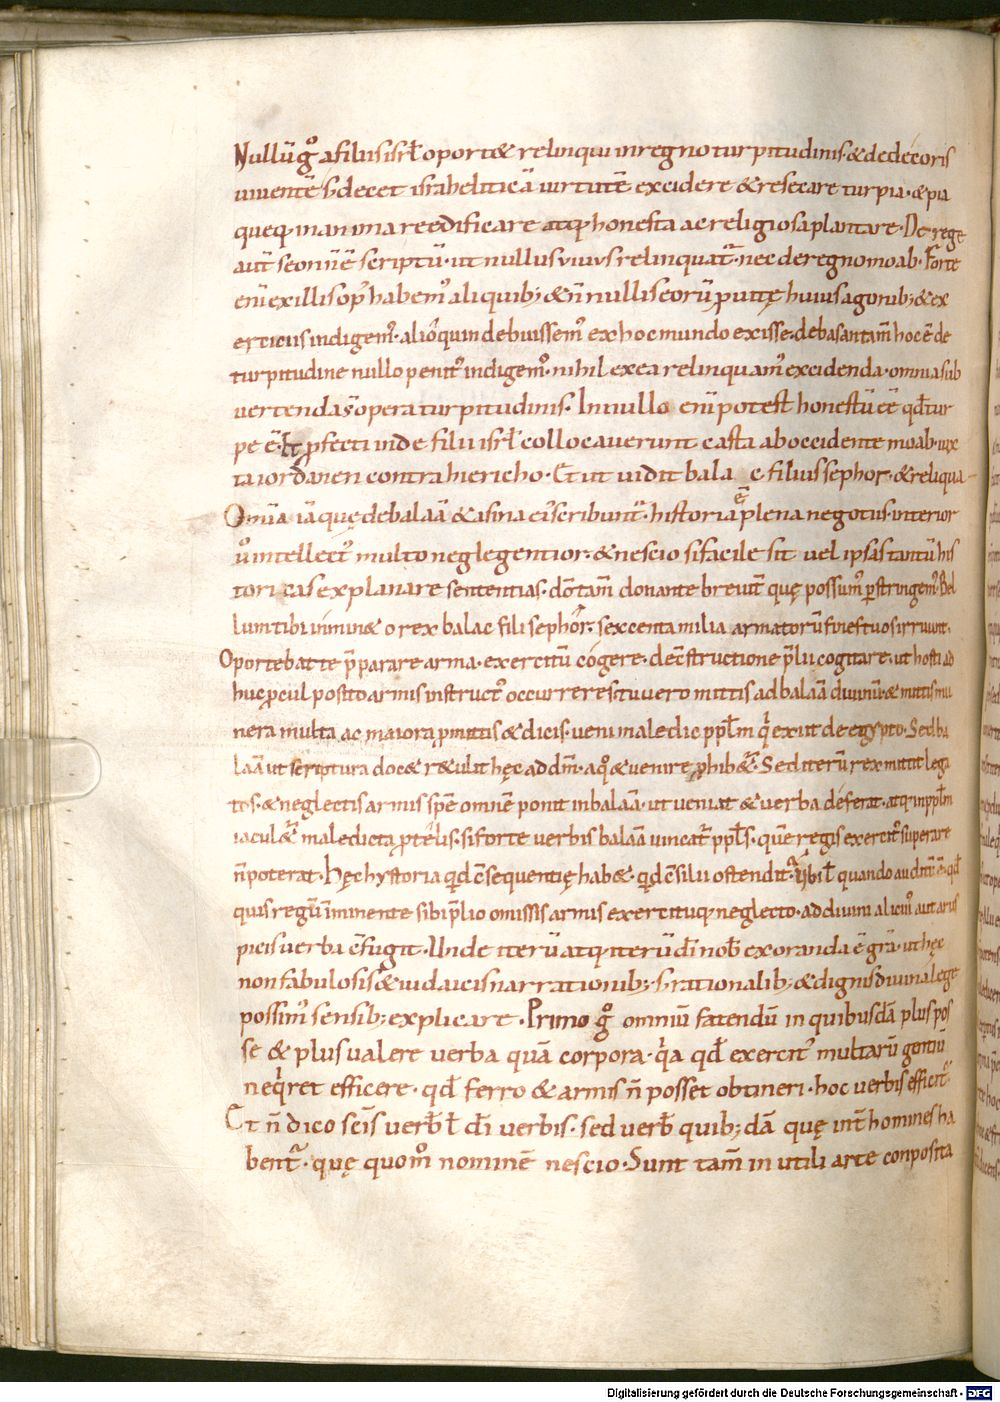 Nullū gͦ a filiis isrł oport& relinqui in regno turpitudinis · & dedecoris
viventē · s; decet israheliticā virtutē excidere & resecare turpia · & pia
queq; in anima reedificare atq; honesta ac religiosa plantare · De rege
aut̄ seon n̄ ē scriptū · ut nullus vivus relinquat᷑ · nec de regno moab · Forte
enī ex illis op᷒ habem᷒ aliquib; & n̄ nulli s eorū p uitę huius agonib; & ex
ercitiis indigem᷒ · alioquin debuissem᷒ ex hoc mundo exisse · de basan tam̄ hoc ē de
turpitudine nullo penit᷒ indigem᷒ · nihil ex ea relinquam᷒ excidenda · omnia sub
vertenda s̄ opera turpitudinis · In nullo enī potest honestū eē qđ tur
pe ē · Et pfecti inde filii isrł collocaverunt castra ab occidente moab · iux
ta iordanen contra hiericho · Et ut vidit bala c filius sephor · & reliqua
Omīa iā quę de balaā & asina ei᷒ scribunt᷑ · historia ē plena negotiis · interior
v̊ intellect᷒ multo neglegentior · & nescio si facile sit vel ipsas tantū his
toricas explanare sententias · dōo tam̄ donante breuit̄ quę possum᷒ pstringem᷒ · Bel
lum tibi imminet o rex balac fili sephor · sexcenta milia armatorū fines tuos irruunt ·
Oportebat te p̄parare arma · exercitū cogere · de c̄structione p̄lii cogitare · ut hosti ad
huc pcul posito armis instruct᷒ occurreres · tu vero mittis ad balaā divinū · & mittis mu
nera multa ac maiora pmittis & dicis · veni maledic pplm qi exiit de egypto · Sed ba
laā ut scriptura doc& r&ulit hęc ad dm̄ · a q̊ & venire phib&᷑ · Sed iterū rex mittit lega
tos · & neglectis armis spē omnē ponit in balaā · ut veniat & verba deferat · atq; in pplm
iacul&᷑ maledicta p telis · si forte verbis balaā vincat᷑ ppls · quē regis exercit᷒ superare
n̄ poterat · Hęc hystoria qid c̄sequentię hab& · qid c̄silii ostendit · a ubi l quando auditū ē · qđ
quis regū imminente sibi p̄lio omissis armis exercituq; neglecto · ad divini alicui᷒ aut arus
picis verba c̄fugit · Unde iterū atq; iterū dī nob exoranda ē grā · ut hęc
non fabulosis & iudaicis narrationib; · s; rationalib; & dignis divina lege
possim᷒ sensib; explicare · Primo gͦ omniū fatendū in quibusdā plus pos
se & plus valere verba quā corpora · qia qđ exercit᷒ multarū gentiū
neqiret efficere · qđ ferro & armis n̄ posset obtineri · hoc verbis efficit᷑ ·
Et n̄ dico scīs verb ł dī verbis · sed verb quib; dā quę int̄ homines ha
bent᷑ · quę quom̊ nominē nescio · Sunt tam̄ inutili arte conposita